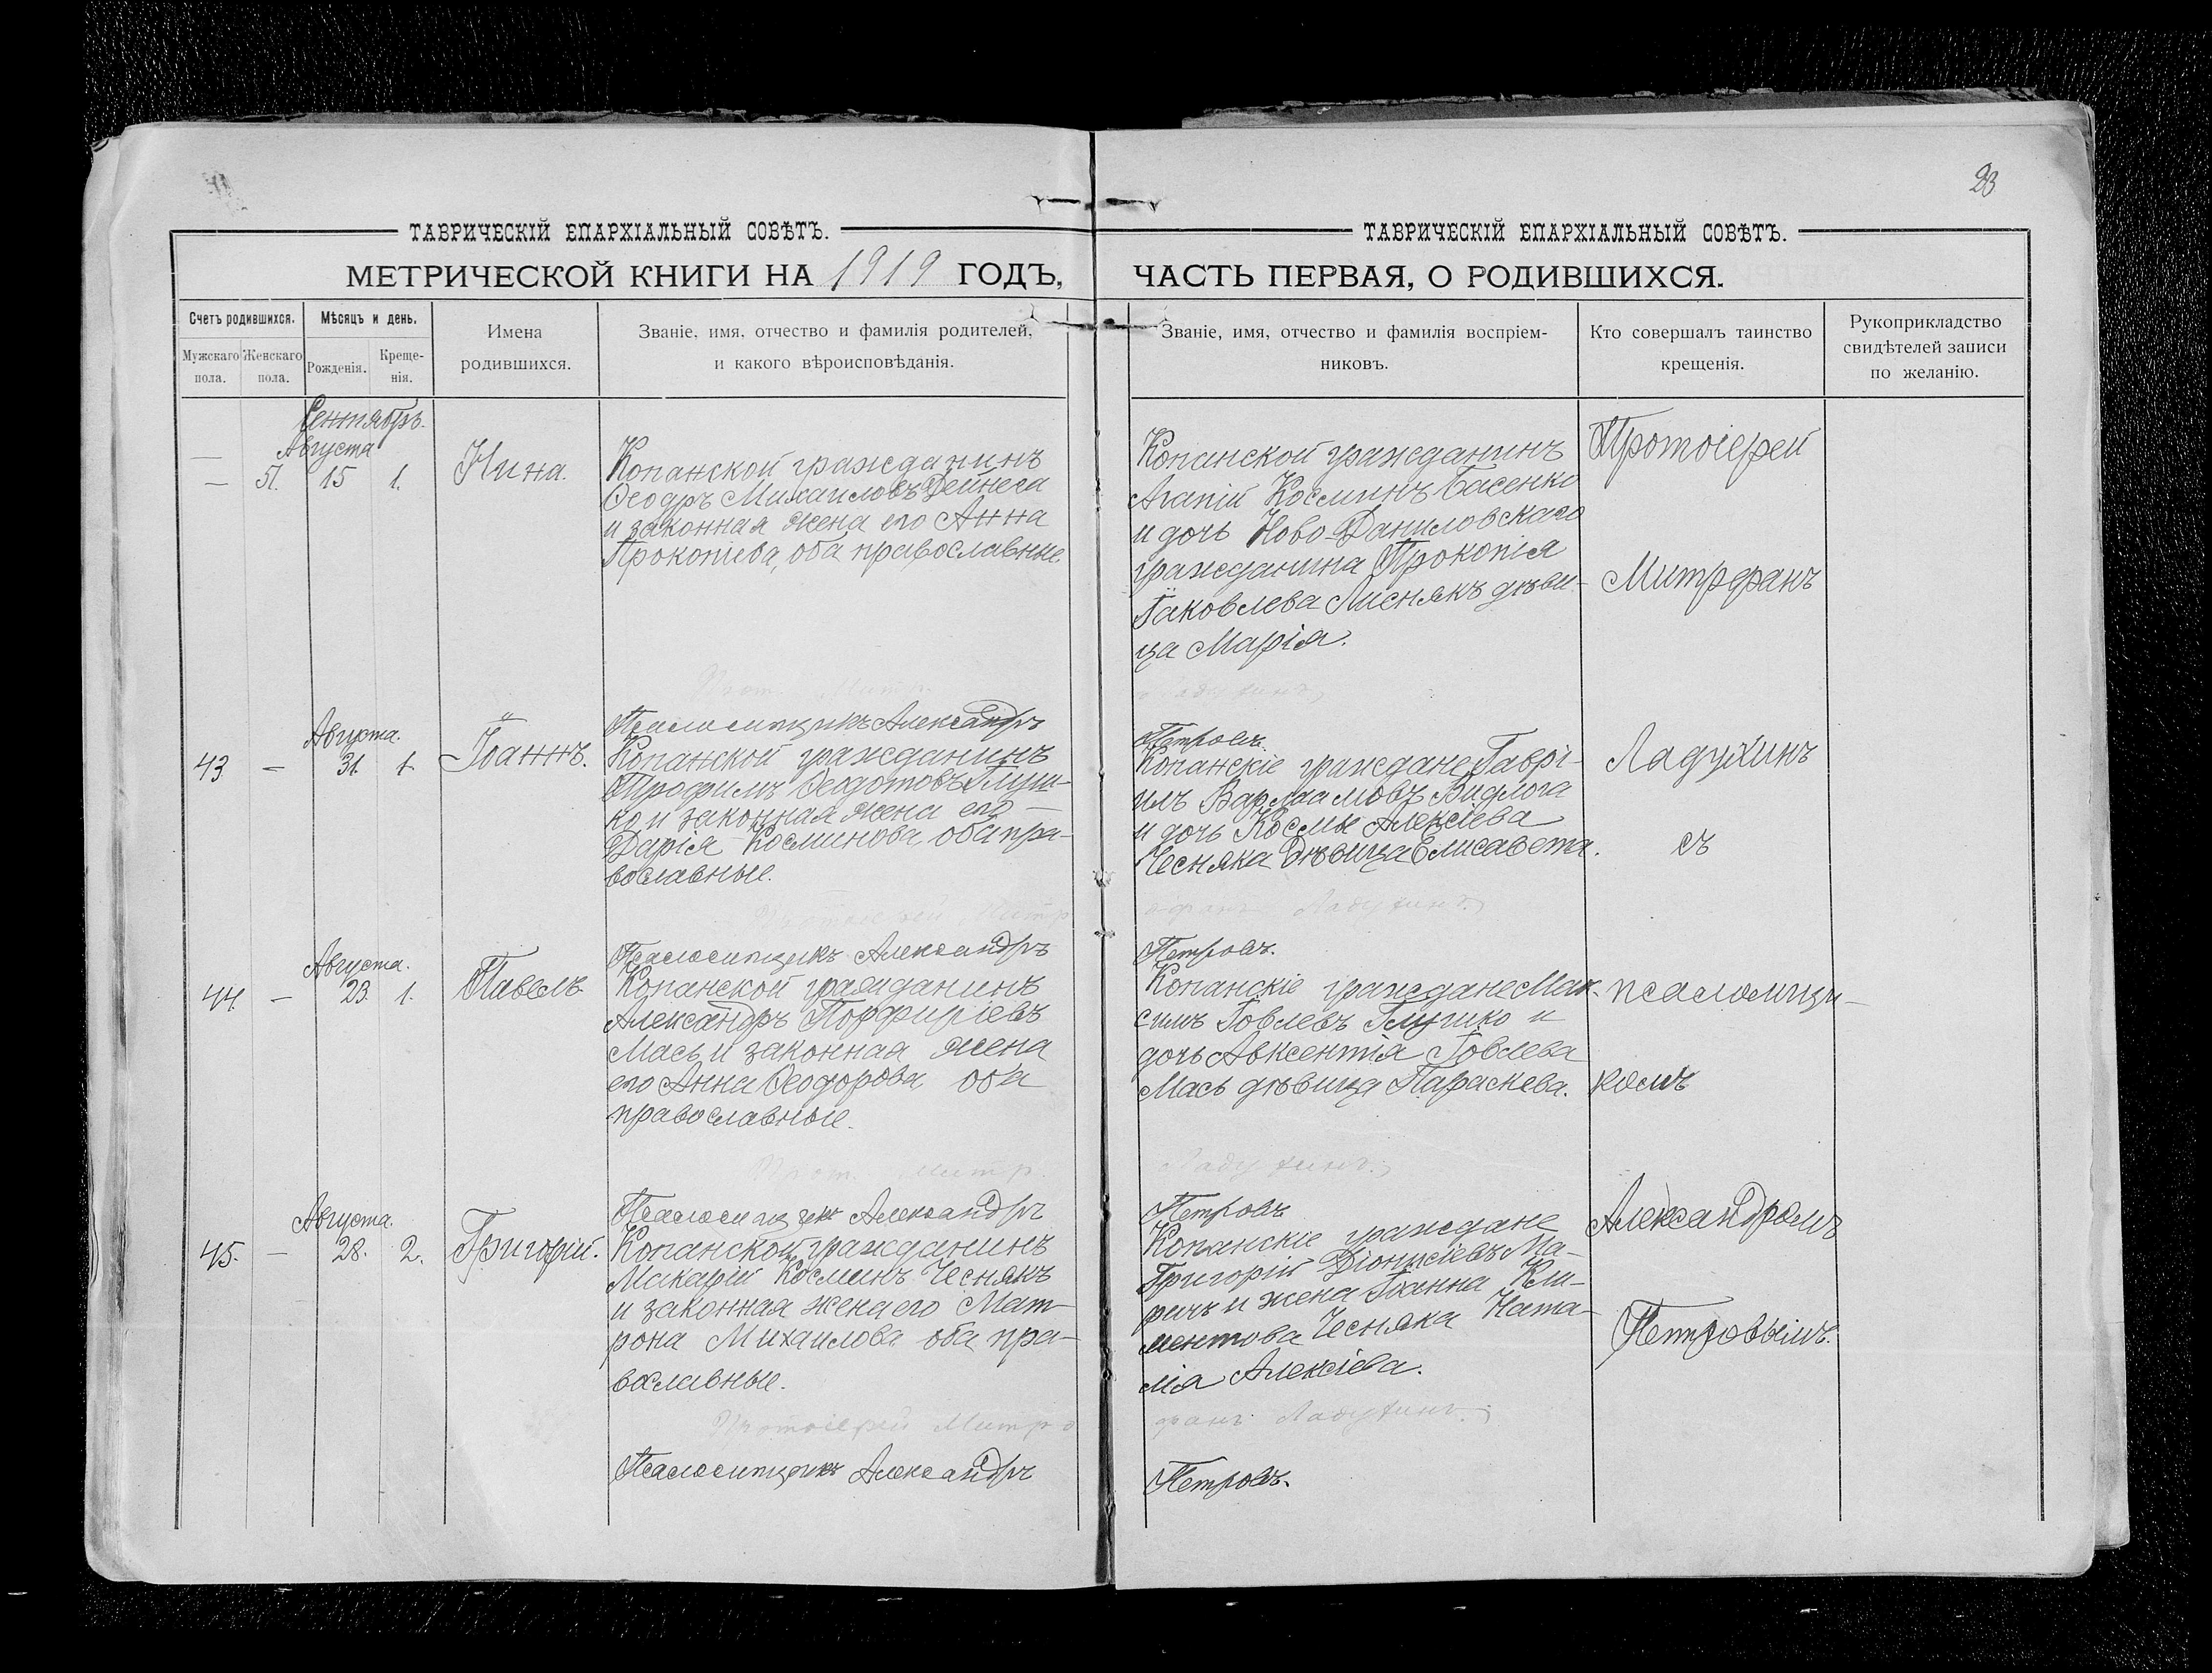 23
ТАВРИЧЕСКІЙ ЕПАРХІАЛЬНЫЙ СОВѢТЪ.
МЕТРИЧЕСКОЙ КНИГИ НА 1919 ГОДЪ,
Счетъ родившихся.
Мѣсяцъ и день.
Мужскаго пола.
Женскаго пола.
Рожденія.
Креще-
нія.
Имена
родившихся.
Званіе, имя, отчество и фамилія родителей,
и какого вѣроисповѣданія.
Сентябрь.
Августа
— 51. 15 1.
Нина.
Копанской гражданинъ
Ѳеодръ Михаиловъ Дейнега
и законная жена его Анна
Прокопіева, оба православные.
Псаломщикъ Александръ
Августа.
43 — 31. 1.
Іоаннъ.
Копанской гражданинъ
Трофимъ Ѳеодотовъ Глуш-
ко и законная жена его —
Дарія Косминова оба пра-
вославные.
Псаломщикъ Александръ
Августа.
44. — 23. 1.
Павелъ
Копанской гражданинъ
Александръ Порфиріевъ
Мась и законная жена
его Анна Ѳеодорова оба
православные.
Псаломщикъ Александръ
Августа.
45. — 28. 2.
Григорій.
Копанской гражданинъ
Макарій Косминъ Чеснякъ
и законная жена его Мат-
рона Михаилова оба пра-
вославные.
Протоіерей Митро
Псаломщикъ Александръ
ТАВРИЧЕСКІЙ ЕПАРХІАЛЬНЫЙ СОВѢТЪ.
ЧАСТЬ ПЕРВАЯ, О РОДИВШИХСЯ.
Званіе, имя, отчество и фамилія воспріем-
никовъ.
Кто совершалъ таинство
крещенія.
Рукоприкладство
свидѣтелей записи
по желанію.
Копанской гражданинъ
Агапій Косминъ Басенко
и дочь Ново-Даниловскаго
гражданина Прокопія
Іаковлева Лиснякъ дѣви-
ца Марія.
Петровъ.
Копанскіе граждане Гаврі-
илъ Варлаамовъ Видлога
и дочь Космы Алексіева
Чесняка дѣвица Елисавета.
фанъ Ладухинъ.
Петровъ.
Копанскіе граждане Мак-
симъ Іовлевъ Глушко и
дочь Авксентія Іовлева
Мась дѣвица Параскева.
Ладухинъ.
Петровъ
Копанскіе граждане
Григорій Діонисіевъ Ма-
ричъ и жена Іоанна Кли-
ментова Чесняка Ната-
лія Алексіева.
фанъ Ладухинъ.
Петровъ.
Протоіерей
Митрофанъ
Ладухинъ
съ
псаломщи-
комъ
Александромъ
Петровымъ.